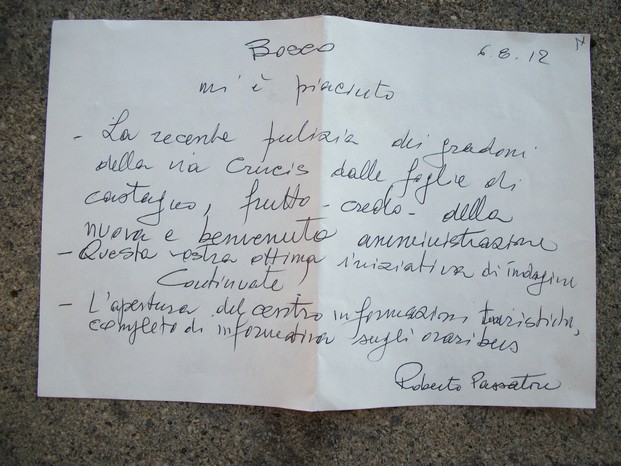 Bosco 6.8.12
mi è piaciuto
- La recente pulizia dei gradoni
della via Crucis dalle foglie di
castagno, frutto - credo - della
nuova e benvenuta amministrazione
- Questa vostra ottima iniziativa di indagini
Continuate
- L'apertura del centro informazioni turistiche,
completo di informativa sugli orari bus
Roberto Passatore